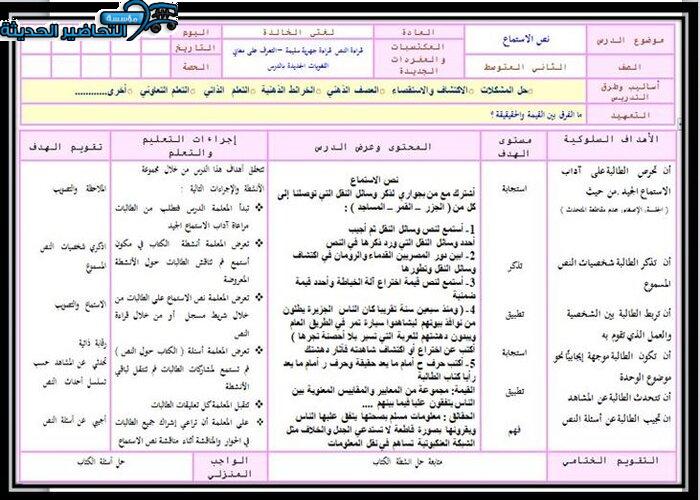 مؤسسة التحاضير الحديثة
موضوع الدرس
نص الاستماع
المادة
لغتي الخالدة
اليوم
الصف
الثاني المتوسط
المكتسبات والمفردات الجديدة
قراءة النص قراءة جهرية سليمة – التعرف على معاني اللغويات الجديدة بالدرس
التاريخ
الحصة
أساليب وطرق التدريس
حل المشكلات الاكتشاف والاستقصاء العصف الذهني الخرائط الذهنية التعلم الذاتي التعلم التعاوني أخرى............
التمهيد
ما الفرق بين القيمة والحقيقة؟
الأهداف السلوكية
مستوى الهدف
المحتوى وعرض الدرس
إجراءات التعليم والتعلم
تقويم الهدف
أن تحرص الطالبة على آداب
الاستماع الجيد .من حيث
أن تذكر الطالبة شخصيات النص
المسموع
أن تربط الطالبة بين الشخصية
والعمل الذي تقوم به
أن تكون الطالبة موجهة إيجابيًا نحو
موضوع الوحدة
أن تتحدث الطالبة عن المشاهد
أن تجيب الطالبة عن أسئلة النص
استجابة
تذكر
تطبيق
استجابة
تطبيق
فهم
نص الاستماع
أشترك مع من بجواري لذكر وسائل النقل التي توصلنا إلى
كل من ( الجزر – القمر – المساجد ) :
1- أستمع لنص وسائل النقل ثم أجيب
أحدد وسائل النقل التي ورد ذكرها في النص
2- أبين دور المصريين القدماء والرومان في اكتشاف
وسائل النقل وتطورها
3- أستمع لنص قيمة اختراع آلة الخياطة وأحدد قيمة
ضمنية
4- ( ومنذ سبعين سنة تقريبا كان الناس في الجزيرة يطلون
من نوافذ بيوتهم ليشاهدوا سيارة تمر في الطريق العام
ويبدون دهشتهم للعربة التي تسير بلا أحصنة تجرها )
أكتب عن اختراع أو اكتشاف شاهدته فأثار دهشتك
5- أكتب حرف ح أمام ما يعد حقيقة وحرف ر أمام ما يعد
رأيا كتاب الطالبة
القيمة: مجموعة من المعايير والمقاييس المعنوية بين
الناس يتفقون عليها فيما بينهم ....
الحقائق : معلومات مسلم بصحتها يتفق عليها الناس
ويقرونها بصورة قاطعة لا تستدعي الجدل والخلاف مثل
الشبكة العنكبوتية تساهم في نقل المعلومات
تتحقق أهداف هذا الدرس من خلال مجموعة
الأنشطة والإجراءات التالية :
تبدأ المعلمة الدرس فتطلب من الطالبات
مراعاة آداب الاستماع الجيد
تعرض المعلمة أنشطة الكتاب في مكون
أستمع ثم تناقش الطالبات حول الأنشطة
المعروضة
تعرض المعلمة نص الاستماع على الطالبات من
خلال شريط مسجل أو من خلال قراءة
النص
تعرض المعلمة أسئلة ( الكتاب حول النص )
ثم تستمع لمشاركات الطالبات ثم تنتقل لباقي
الأنشطة
تتقبل المعلمة كل تعليقات الطالبات
على أن تراعي إشراك جميع الطالبات
في الحوار والمناقشة أثناء مناقشة نص الاستماع
الملاحظة والتصويب
اذكري شخصيات النص
المسموع
الاستماع والتصويب
رقابة ذاتية
تحدثي عن المشاهد حسب
تسلسل أحداث النص
أجيبي عن أسئلة النص
التقويم الختامي
متابعة حل أنشطة الكتاب
الواجب المنزلي
حل أسئلة الكتاب